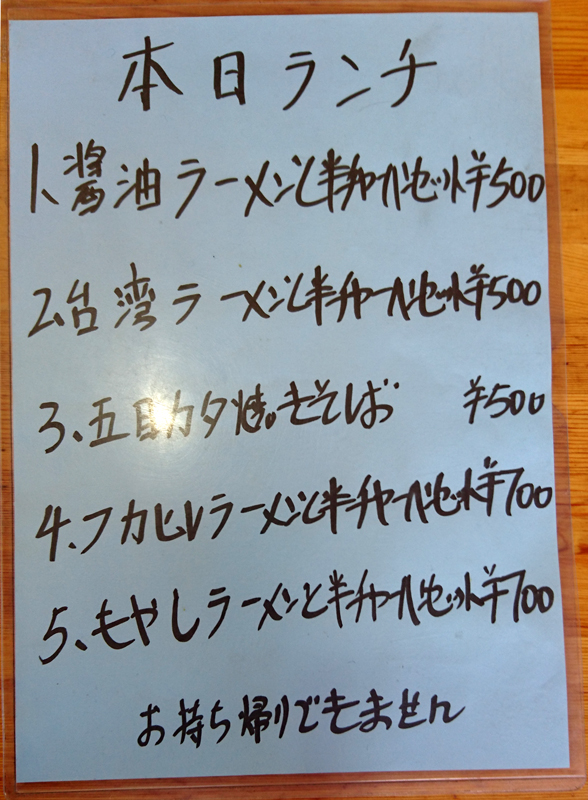 本日ランチ
1、醤油ラーメンと半チャーハンセット¥500
2、台湾ラーメンと半チャーハンセット¥500
3、五目カタ焼きそば ¥500
4、フカヒレラーメンと半チャーハンセット¥700
5、もやしラーメンと半チャーハンセット¥700
お持ち帰りできません